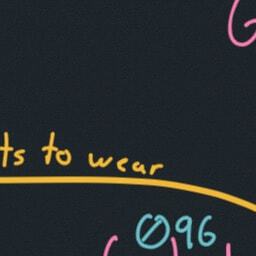 ts to wear
096